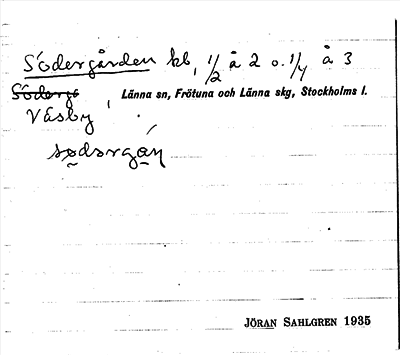 Södergården kb, 1/2 å 2 o. 1/4 å 3
Söderg
Länna sn, Frötuna och Länna skg, Stockholms l.
Väsby,
JÖRAN SAHLGREN 1935